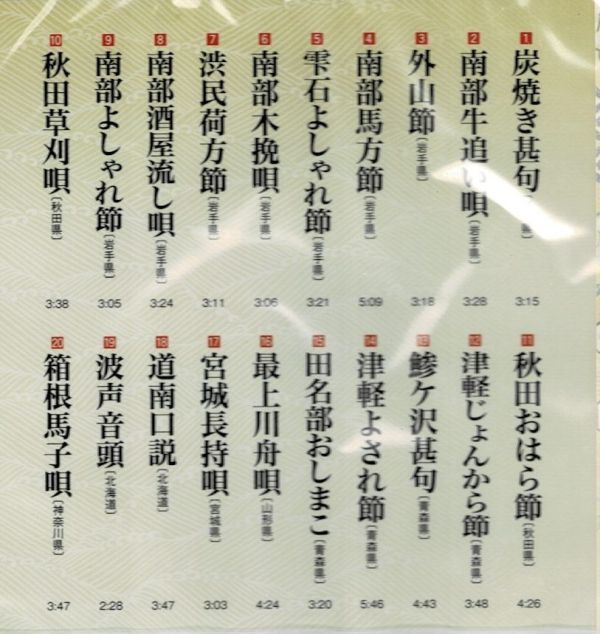 1 炭焼き甚句〔岩手県〕 3:15
2 南部牛追い唄〔岩手県〕 3:28
3 外山節〔岩手県〕 3:18
4 南部馬方節〔岩手県〕 5:09
5 雫石よしゃれ節〔岩手県〕 3:21
6 南部木挽唄〔岩手県〕 3:06
7 渋民荷方節〔岩手県〕 3:11
8 南部酒屋流し唄〔岩手県〕 3:24
9 南部よしゃれ節〔岩手県〕 3:05
10 秋田草刈唄〔秋田県〕 3:38
11 秋田おはら節〔秋田県〕 4:26
12 津軽じょんから節〔青森県〕 3:48
13 鯵ケ沢甚句〔青森県〕 4:43
14 津軽よされ節〔青森県〕 5:46
15 田名部おしまこ〔青森県〕 3:20
16 最上川舟唄〔山形県〕 4:24
17 宮城長持唄〔宮城県〕 3:03
18 道南口説〔北海道〕 3:47
19 波声音頭〔北海道〕 2:28
20 箱根馬子唄〔神奈川県〕 3:47